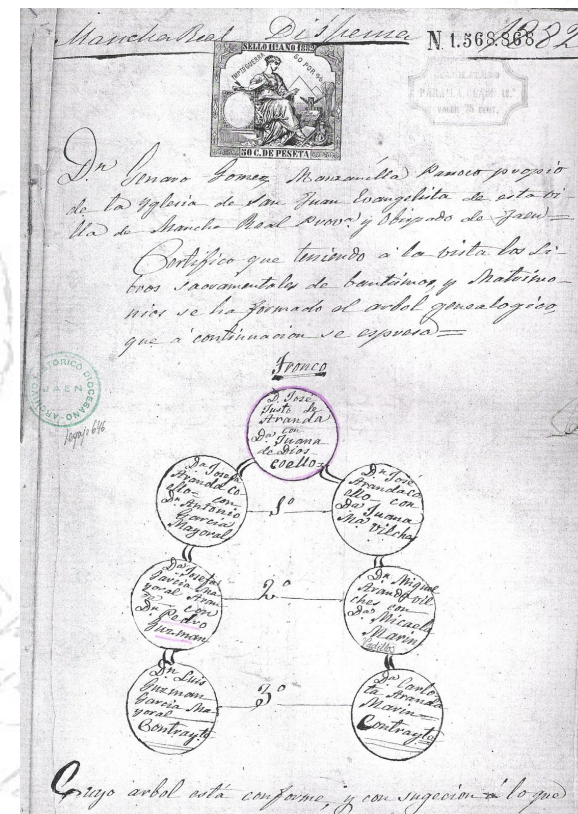 Mancha Real Dispensa 1882
N. 1.568.868
SELLO 11º AÑO 1882
IMPTO GUERRA 50 POR %
50 C. DE PESETA
PARA LA CLASE 12.ª
VALOR 75 CENT.
Dn Genaro Gomez Manzanilla Parroco propio
de la Yglesia de San Juan Evangelista de esta vi-
lla de Mancha Real Provª y Obispado de Jaen=
Certifico que teniendo á la vista los Li-
bros sacramentales de bautismos y Matrimo-
nios se ha formado el arbol genealogico,
que á continuacion se espresa=
HISTORICO DIOCESANO ARCHIVO
JAEN
legajo 646
Tronco
D. José
Justo de
Aranda
con
Dª Juana
de Dios
Coello=
Dª Josefa
Aranda Co
ello- con
Dn Antonio
Garcia
Mayoral
1º
Dn José
Aranda Co
ello- con
Dª Juana
Mª Vilche
Dª Josefa
Garcia Ma
yoral Aran
con
Dn Pedro
Guzman
2º
Dn Miguel
Aranda Vil
ches con
Dª Micaela
Marin
Padilla
Dn Luis
Guzman
Garcia Ma
yoral
Contrayte
3º
Dª Carlo
ta Aranda
Marin=
Contrayte
Cuyo arbol está conforme, y con sugecion á lo que